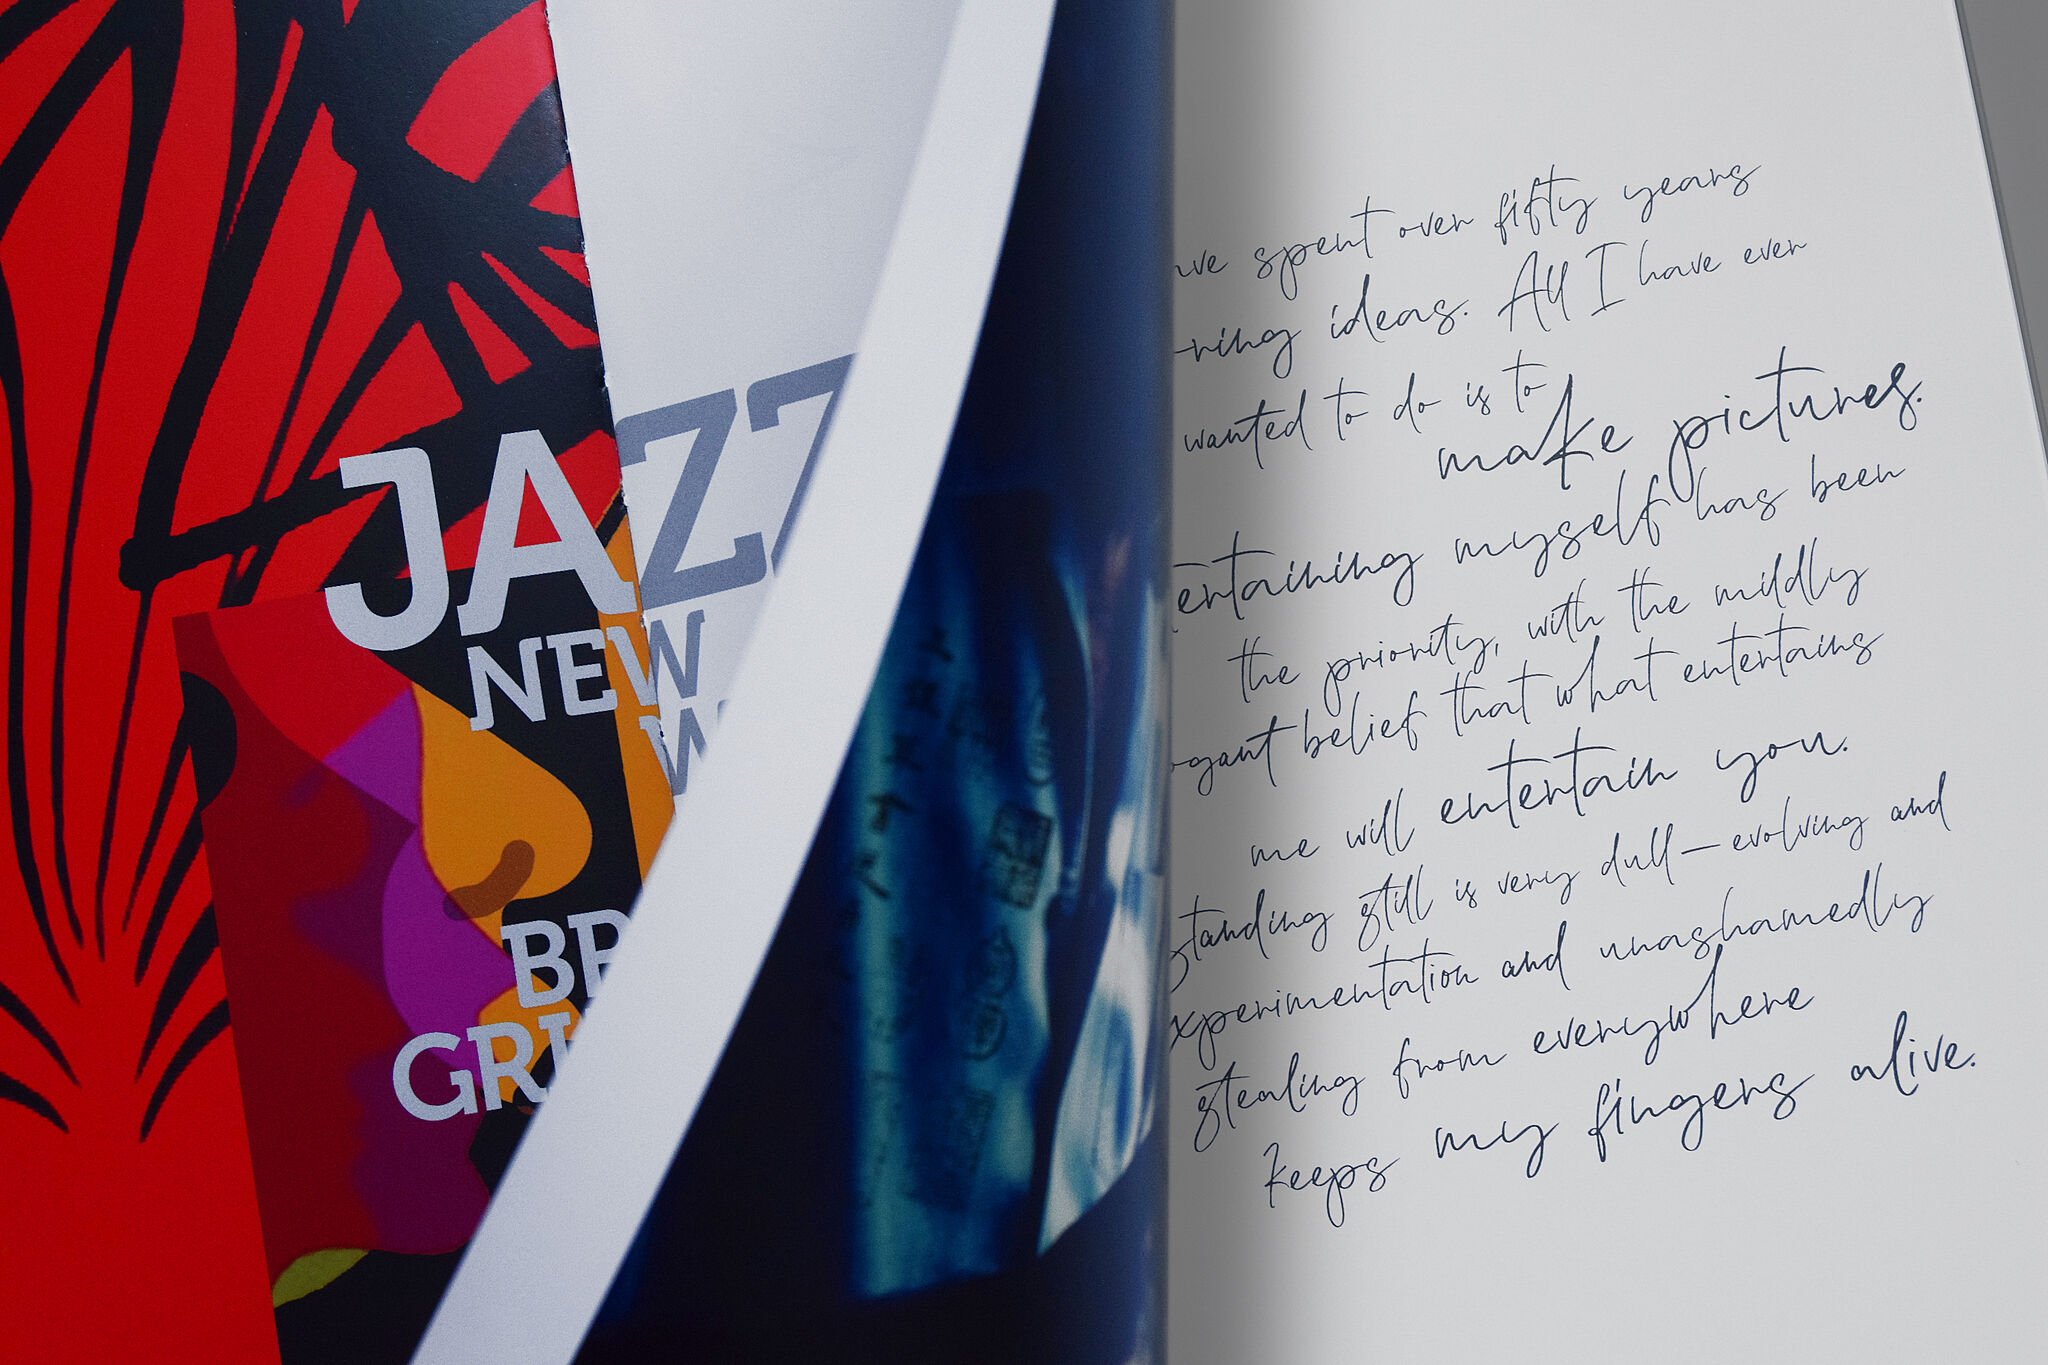 JAZZ
NEW
W
BR
GRI
ve spent over fifty years
ring ideas. All I have ever
wanted to do is to
make pictures.
ertaining myself has been
the priority, with the mildly
ogant belief that what entertains
me will entertain you.
standing still is very dull—evolving and
xperimentation and unashamedly
stealing from everywhere
keeps my fingers alive.